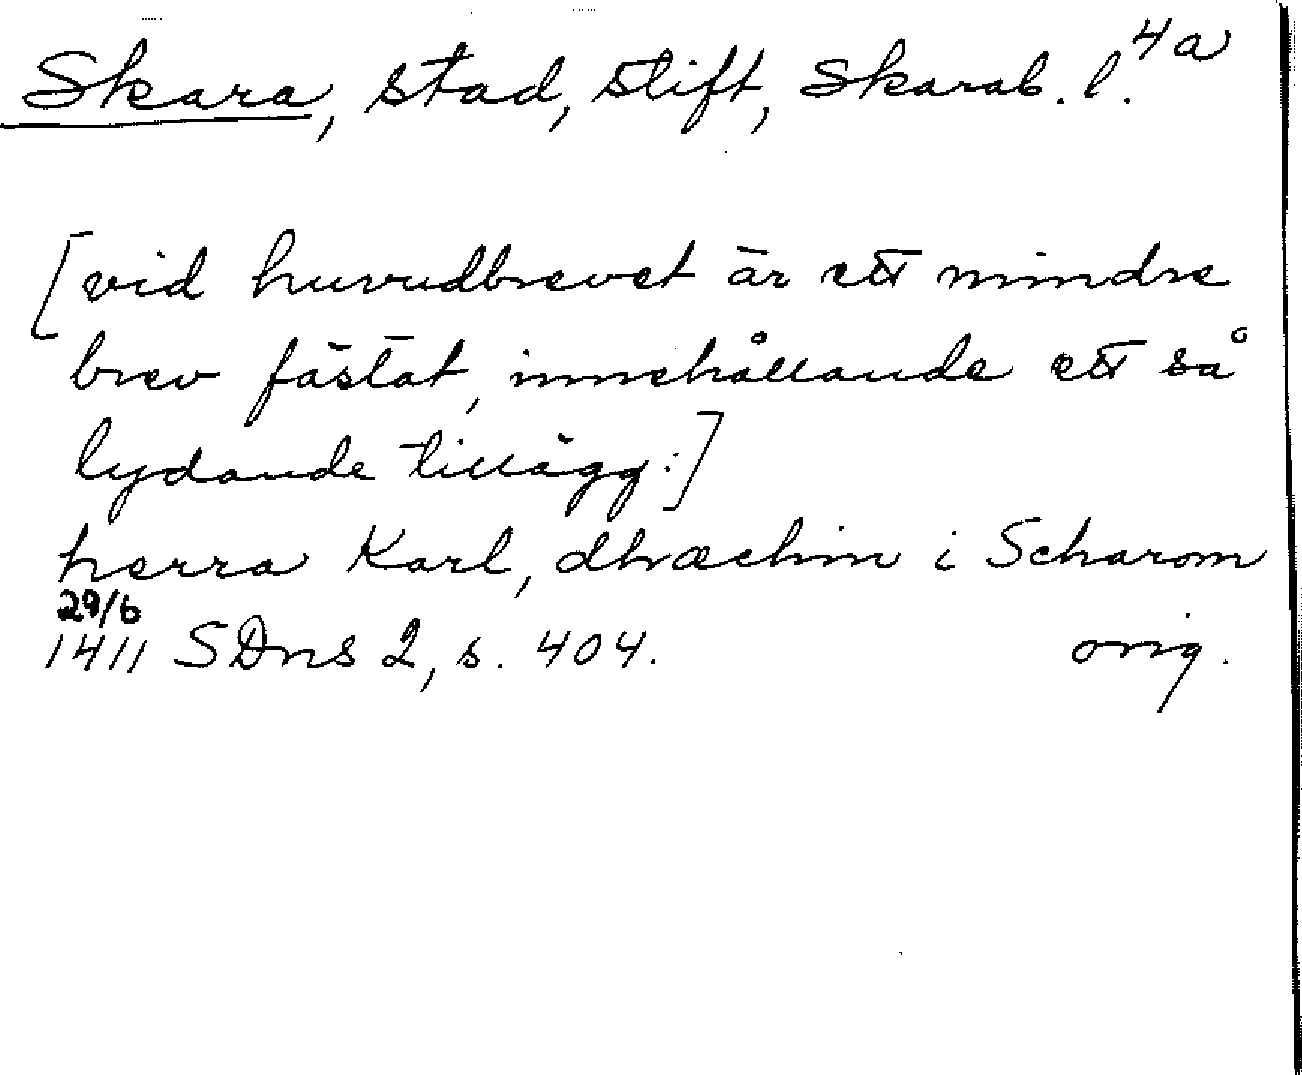 Skara, stad, stift, Skarab. l. 4a
[vid huvudbrevet är ett mindre
brev fästat, innehållande ett så
lydande tillägg:]
herra Karl, dhæchin i Scharom
29/6
1411 SDns 2, s. 404. orig.